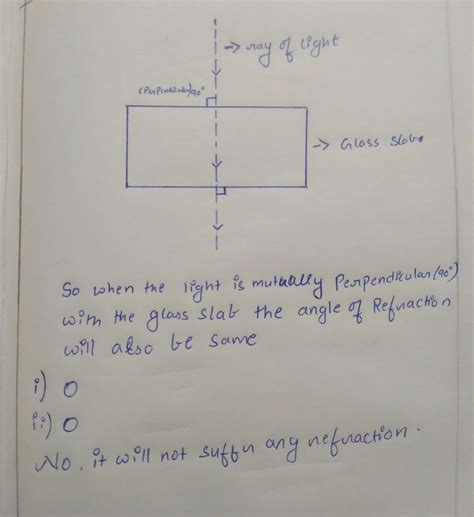 → ray of light
(Perpendicular) 90°
→ Glass slab.
So when the light is mutually Perpendicular (90°)
with the glass slab the angle of Refraction
will also be same
i) 0
ii) 0
No, it will not suffer any refraction.